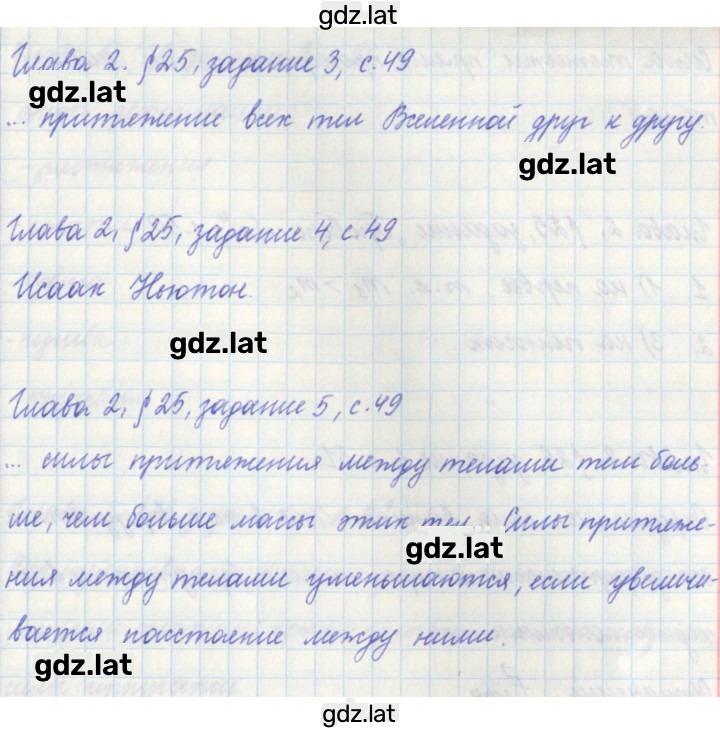 gdz.lat
Глава 2. §25, задание 3, с.49
gdz.lat
... притяжение всех тел Вселенной друг к другу.
gdz.lat
Глава 2, §25, задание 4, с.49
Исаак Ньютон.
gdz.lat
Глава 2, §25, задание 5, с.49
... силы притяжения между телами тем боль-
ше, чем больше массы этих тел. Силы притяже-
gdz.lat
ния между телами уменьшаются, если увеличи-
вается расстояние между ними.
gdz.lat
gdz.lat